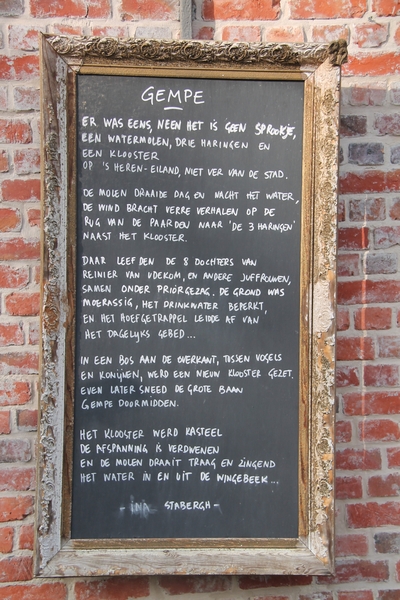 GEMPE
ER WAS EENS, NEEN HET IS GEEN SPROOKJE,
EEN WATERMOLEN, DRIE HARINGEN EN
EEN KLOOSTER
OP 'S HEREN-EILAND, NIET VER VAN DE STAD.
DE MOLEN DRAAIDE DAG EN NACHT HET WATER,
DE WIND BRACHT VERRE VERHALEN OP DE
RUG VAN DE PAARDEN NAAR 'DE 3 HARINGEN'
NAAST HET KLOOSTER.
DAAR LEEFDEN DE 8 DOCHTERS VAN
REINIER VAN UDEKOM, EN ANDERE JUFFROUWEN,
SAMEN ONDER PRIORGEZAG. DE GROND WAS
MOERASSIG, HET DRINKWATER BEPERKT,
EN HET HOEFGETRAPPEL LEIDDE AF VAN
HET DAGELIJKS GEBED...
IN EEN BOS AAN DE OVERKANT, TUSSEN VOGELS
EN KONIJNEN, WERD EEN NIEUW KLOOSTER GEZET.
EVEN LATER SNEED DE GROTE BAAN
GEMPE DOORMIDDEN.
HET KLOOSTER WERD KASTEEL
DE AFSPANNING IS VERDWENEN
EN DE MOLEN DRAAIT TRAAG EN ZINGEND
HET WATER IN EN UIT DE WINGEBEEK...
STABERGH -